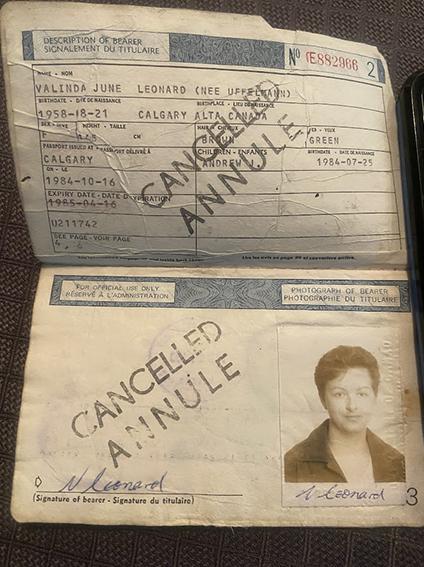 DESCRIPTION OF BEARER
SIGNALEMENT DU TITULAIRE
Nº E882966 2
NAME - NOM
VALINDA JUNE LEONARD (NEE UFFELMANN)
BIRTHDATE - DATE DE NAISSANCE BIRTHPLACE - LIEU DE NAISSANCE
1958 CALGARY ALTA CANADA
SEX - SEXE HEIGHT - TAILLE HAIR - CHEVEUX EYES - YEUX
F CM BROWN GREEN
PASSPORT ISSUED AT - PASSEPORT DÉLIVRÉ À CHILDREN - ENFANTS BIRTHDATE - DATE DE NAISSANCE
CALGARY ANDREW J. 1984-07-25
ON - LE
1984-10-16
EXPIRY DATE - DATE D'EXPIRATION
1985-04-16
U211742
SEE PAGE - VOIR PAGE
4,
CANCELLED
ANNULE
Lire les avis en page de couverture arrière.
FOR OFFICIAL USE ONLY
RÉSERVÉ À L'ADMINISTRATION
PHOTOGRAPH OF BEARER
PHOTOGRAPHIE DU TITULAIRE
CANCELLED
ANNULE
V Leonard
(Signature of bearer - Signature du titulaire)
V Leonard
3